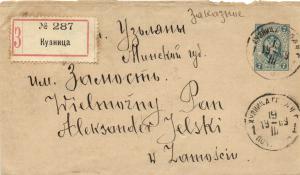 Заказное
№ 287
З
Кузница
ст. Узляны
Минской губ.
им. Замость.
Wielmożny Pan
Aleksander Jelski
w Zamościu
7
19
III
КУЗНИЦА
19
III